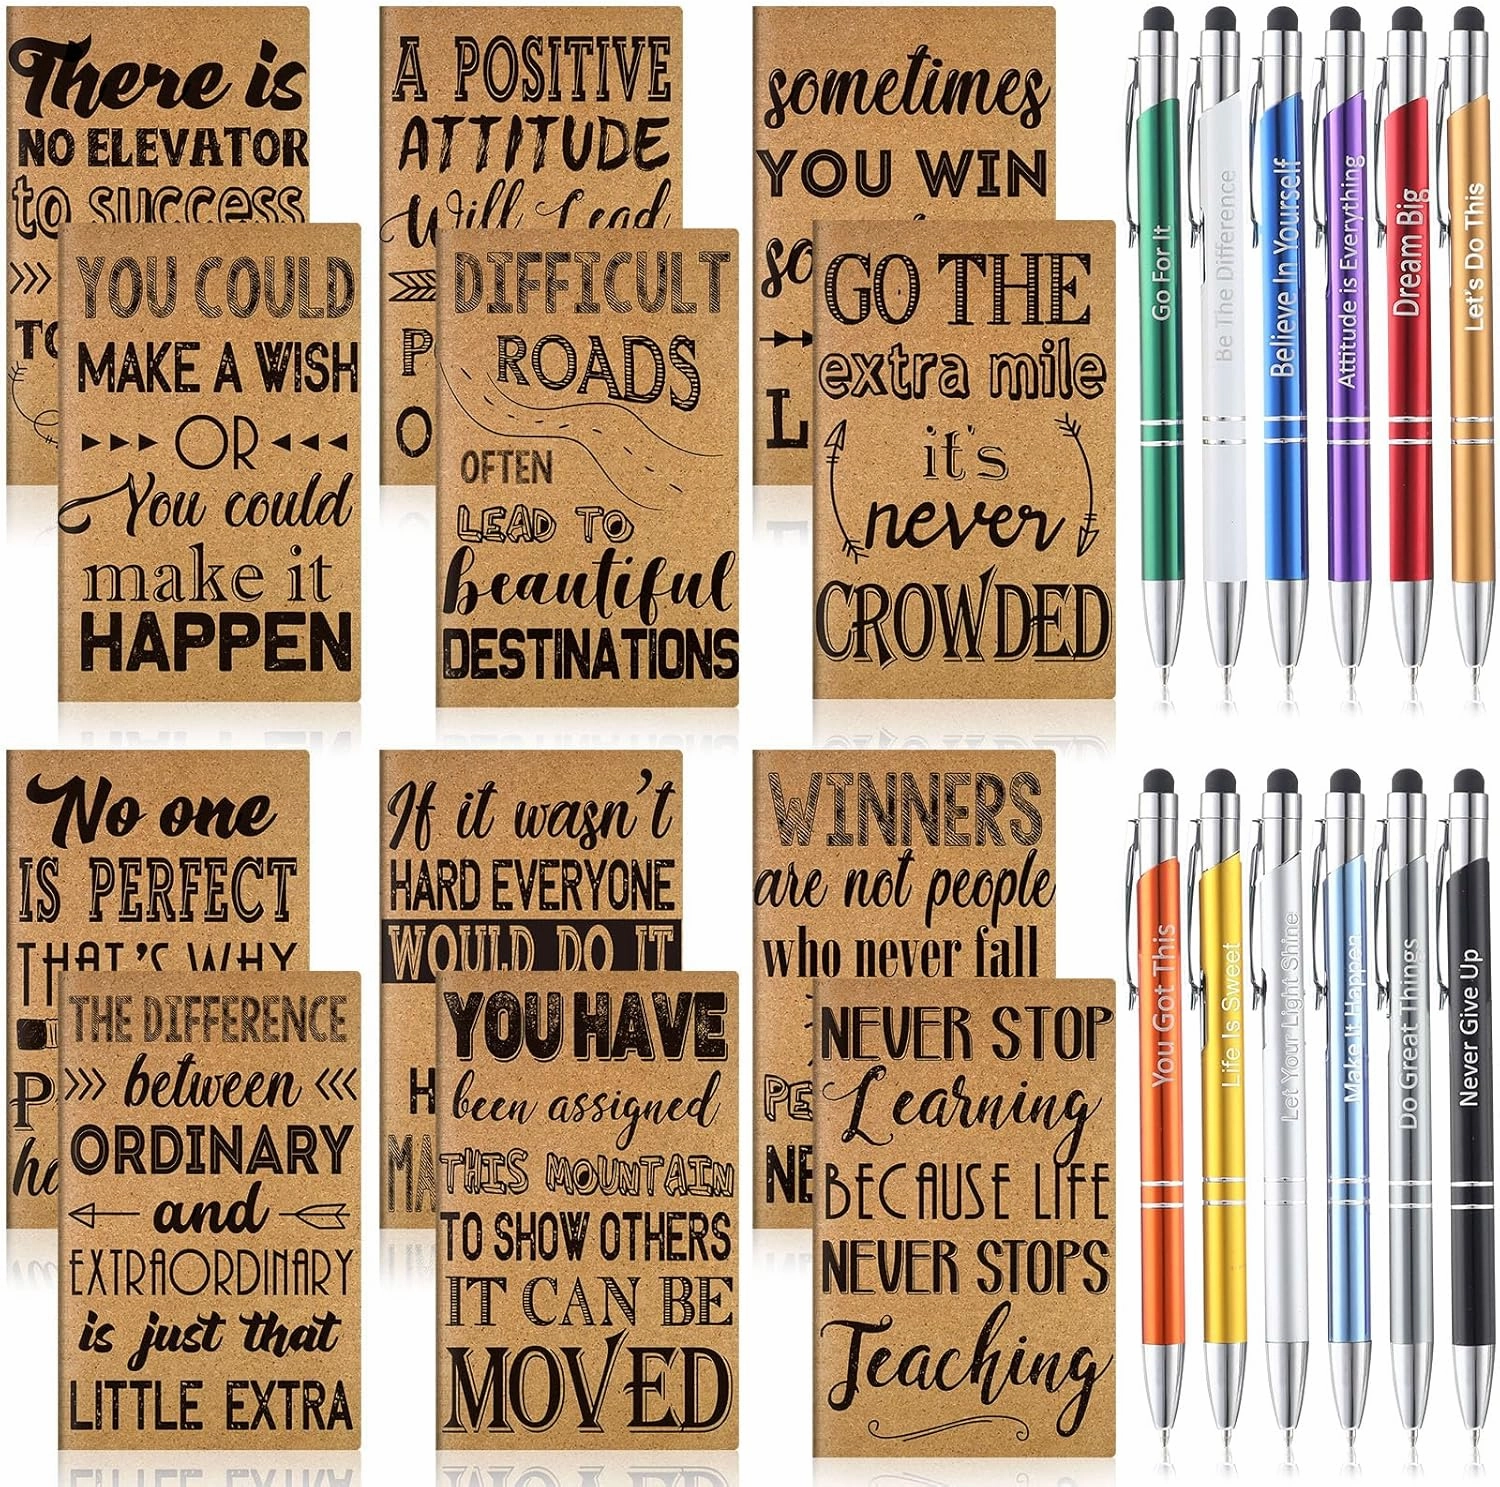 There is
NO ELEVATOR
to success
TO
YOU COULD
MAKE A WISH
OR
You could
make it
HAPPEN
A POSITIVE
ATTITUDE
Will Lead
O
DIFFICULT
ROADS
OFTEN
LEAD TO
beautiful
DESTINATIONS
sometimes
YOU WIN
so
L
GO THE
extra mile
it's
never
CROWDED
Go For It
Be The Difference
Believe In Yourself
Attitude is Everything
Dream Big
Let's Do This
No one
IS PERFECT
THAT'S WHY
P
ha
THE DIFFERENCE
between
ORDINARY
and
EXTRAORDINARY
is just that
LITTLE EXTRA
If it wasn't
HARD EVERYONE
WOULD DO IT
H
MA
YOU HAVE
been assigned
THIS MOUNTAIN
TO SHOW OTHERS
IT CAN BE
MOVED
WINNERS
are not people
who never fall
PE
NE
NEVER STOP
Learning
BECAUSE LIFE
NEVER STOPS
Teaching
You Got This
Life Is Sweet
Let Your Light Shine
Make It Happen
Do Great Things
Never Give Up